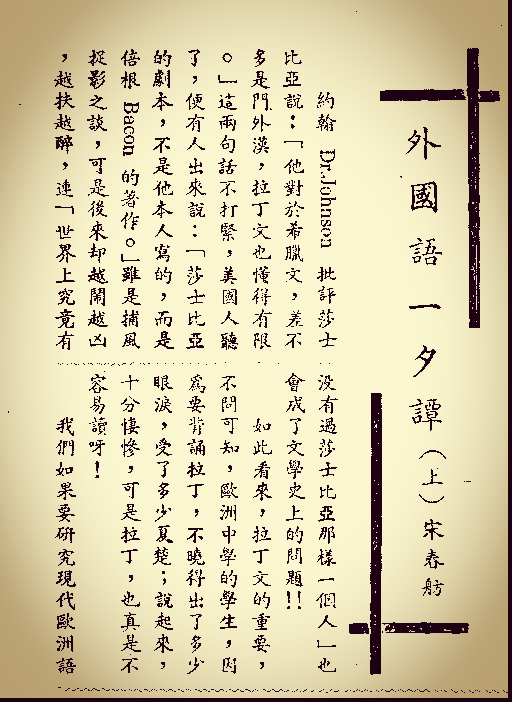 外國語一夕譚（上）宋春舫
約翰 Dr.Johnson 批評莎士
比亞說：「他對於希臘文，差不
多是門外漢，拉丁文也懂得有限
。」這兩句話不打緊，美國人聽
了，便有人出來說：「莎士比亞
的劇本，不是他本人寫的，而是
倍根 Bacon 的著作。」雖是捕風
捉影之談，可是後來却越鬧越凶
，越扶越醉，連「世界上究竟有
没有過莎士比亞那樣一個人」也
會成了文學史上的問題！！
如此看來，拉丁文的重要，
不問可知，歐洲中學的學生，因
爲要背誦拉丁，不曉得出了多少
眼淚，受了多少夏楚；說起來，
十分悽慘，可是拉丁，也真是不
容易讀呀！
我們如果要研究現代歐洲語